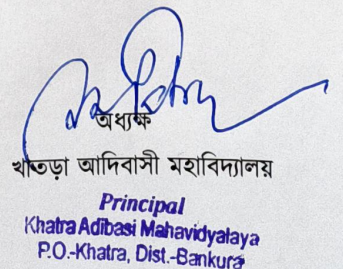 অধ্যক্ষ
খাতড়া আদিবাসী মহাবিদ্যালয়
Principal
Khatra Adibasi Mahavidyalaya
P.O.-Khatra, Dist.-Bankura